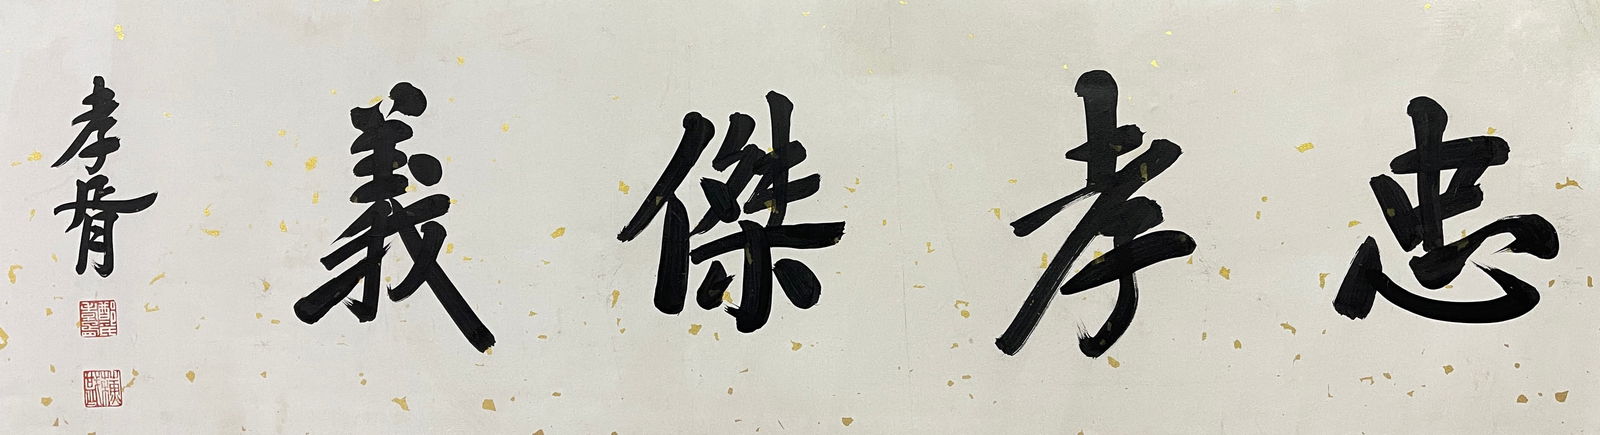 忠孝傑義
孝胥